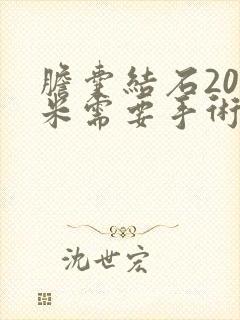 膽囊結石20
米需要手術
沈世宏